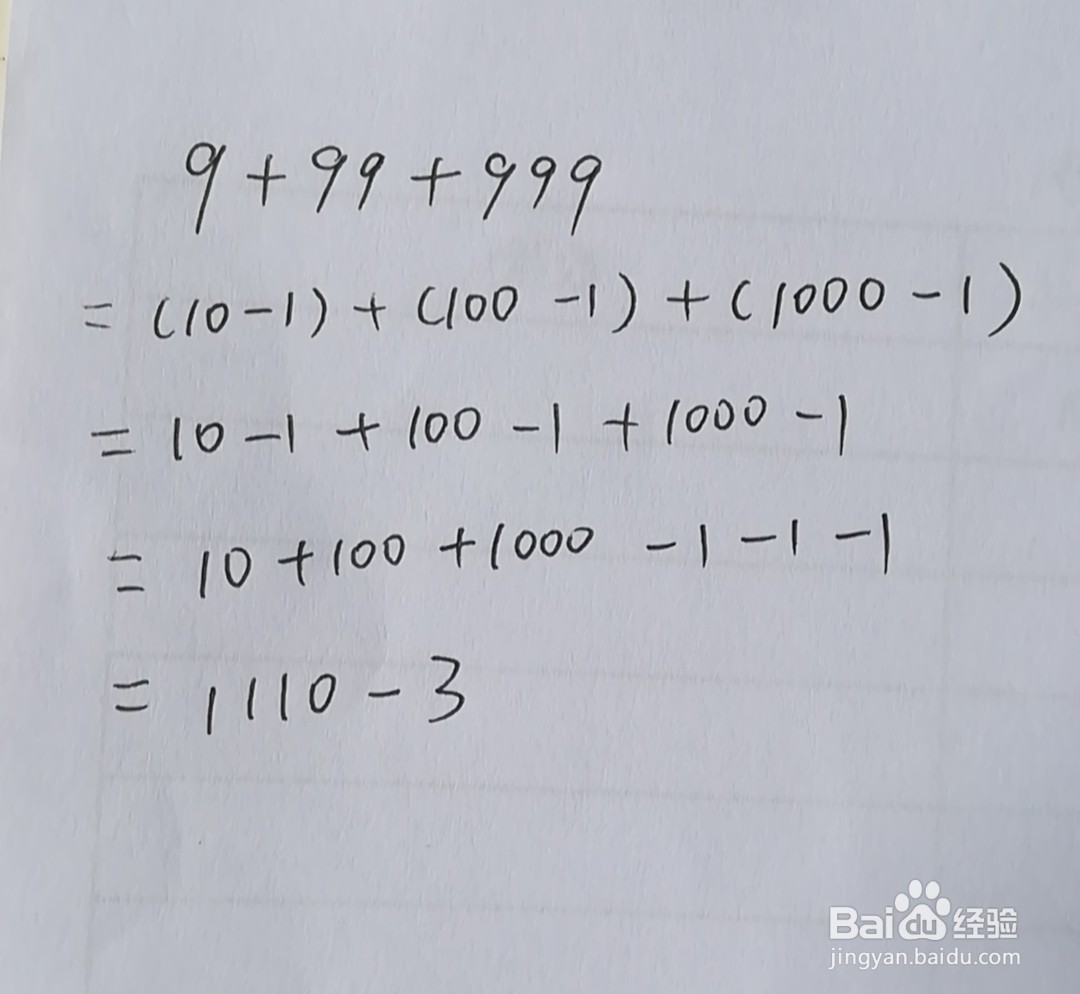 9+99+999
=(10-1)+(100-1)+(1000-1)
=10-1+100-1+1000-1
=10+100+1000-1-1-1
=1110-3
Baidu经验
jingyan.baidu.com